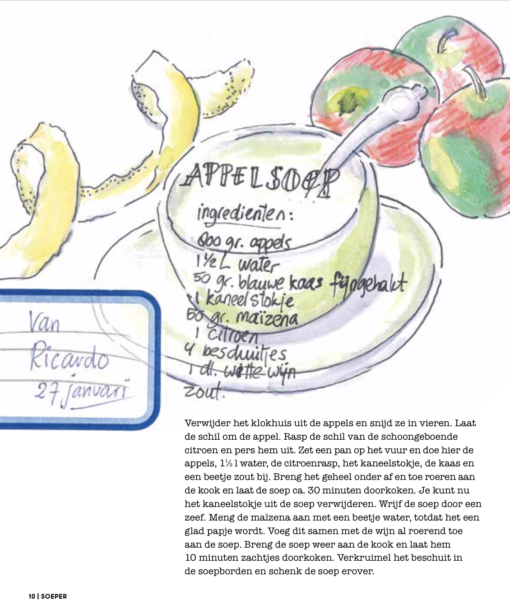 APPELSOEP
ingrediënten:
600 gr. appels
1½ L water
50 gr. blauwe kaas fijngehakt
1 kaneelstokje
50 gr. maïzena
1 citroen
4 beschuitjes
1 dl. witte wijn
zout.
Van
Ricardo
27 januari
Verwijder het klokhuis uit de appels en snijd ze in vieren. Laat
de schil om de appel. Rasp de schil van de schoongeboende
citroen en pers hem uit. Zet een pan op het vuur en doe hier de
appels, 1½ l water, de citroenrasp, het kaneelstokje, de kaas en
een beetje zout bij. Breng het geheel onder af en toe roeren aan
de kook en laat de soep ca. 30 minuten doorkoken. Je kunt nu
het kaneelstokje uit de soep verwijderen. Wrijf de soep door een
zeef. Meng de maïzena aan met een beetje water, totdat het een
glad papje wordt. Voeg dit samen met de wijn al roerend toe
aan de soep. Breng de soep weer aan de kook en laat hem
10 minuten zachtjes doorkoken. Verkruimel het beschuit in
de soepborden en schenk de soep erover.
10 | SOEPER